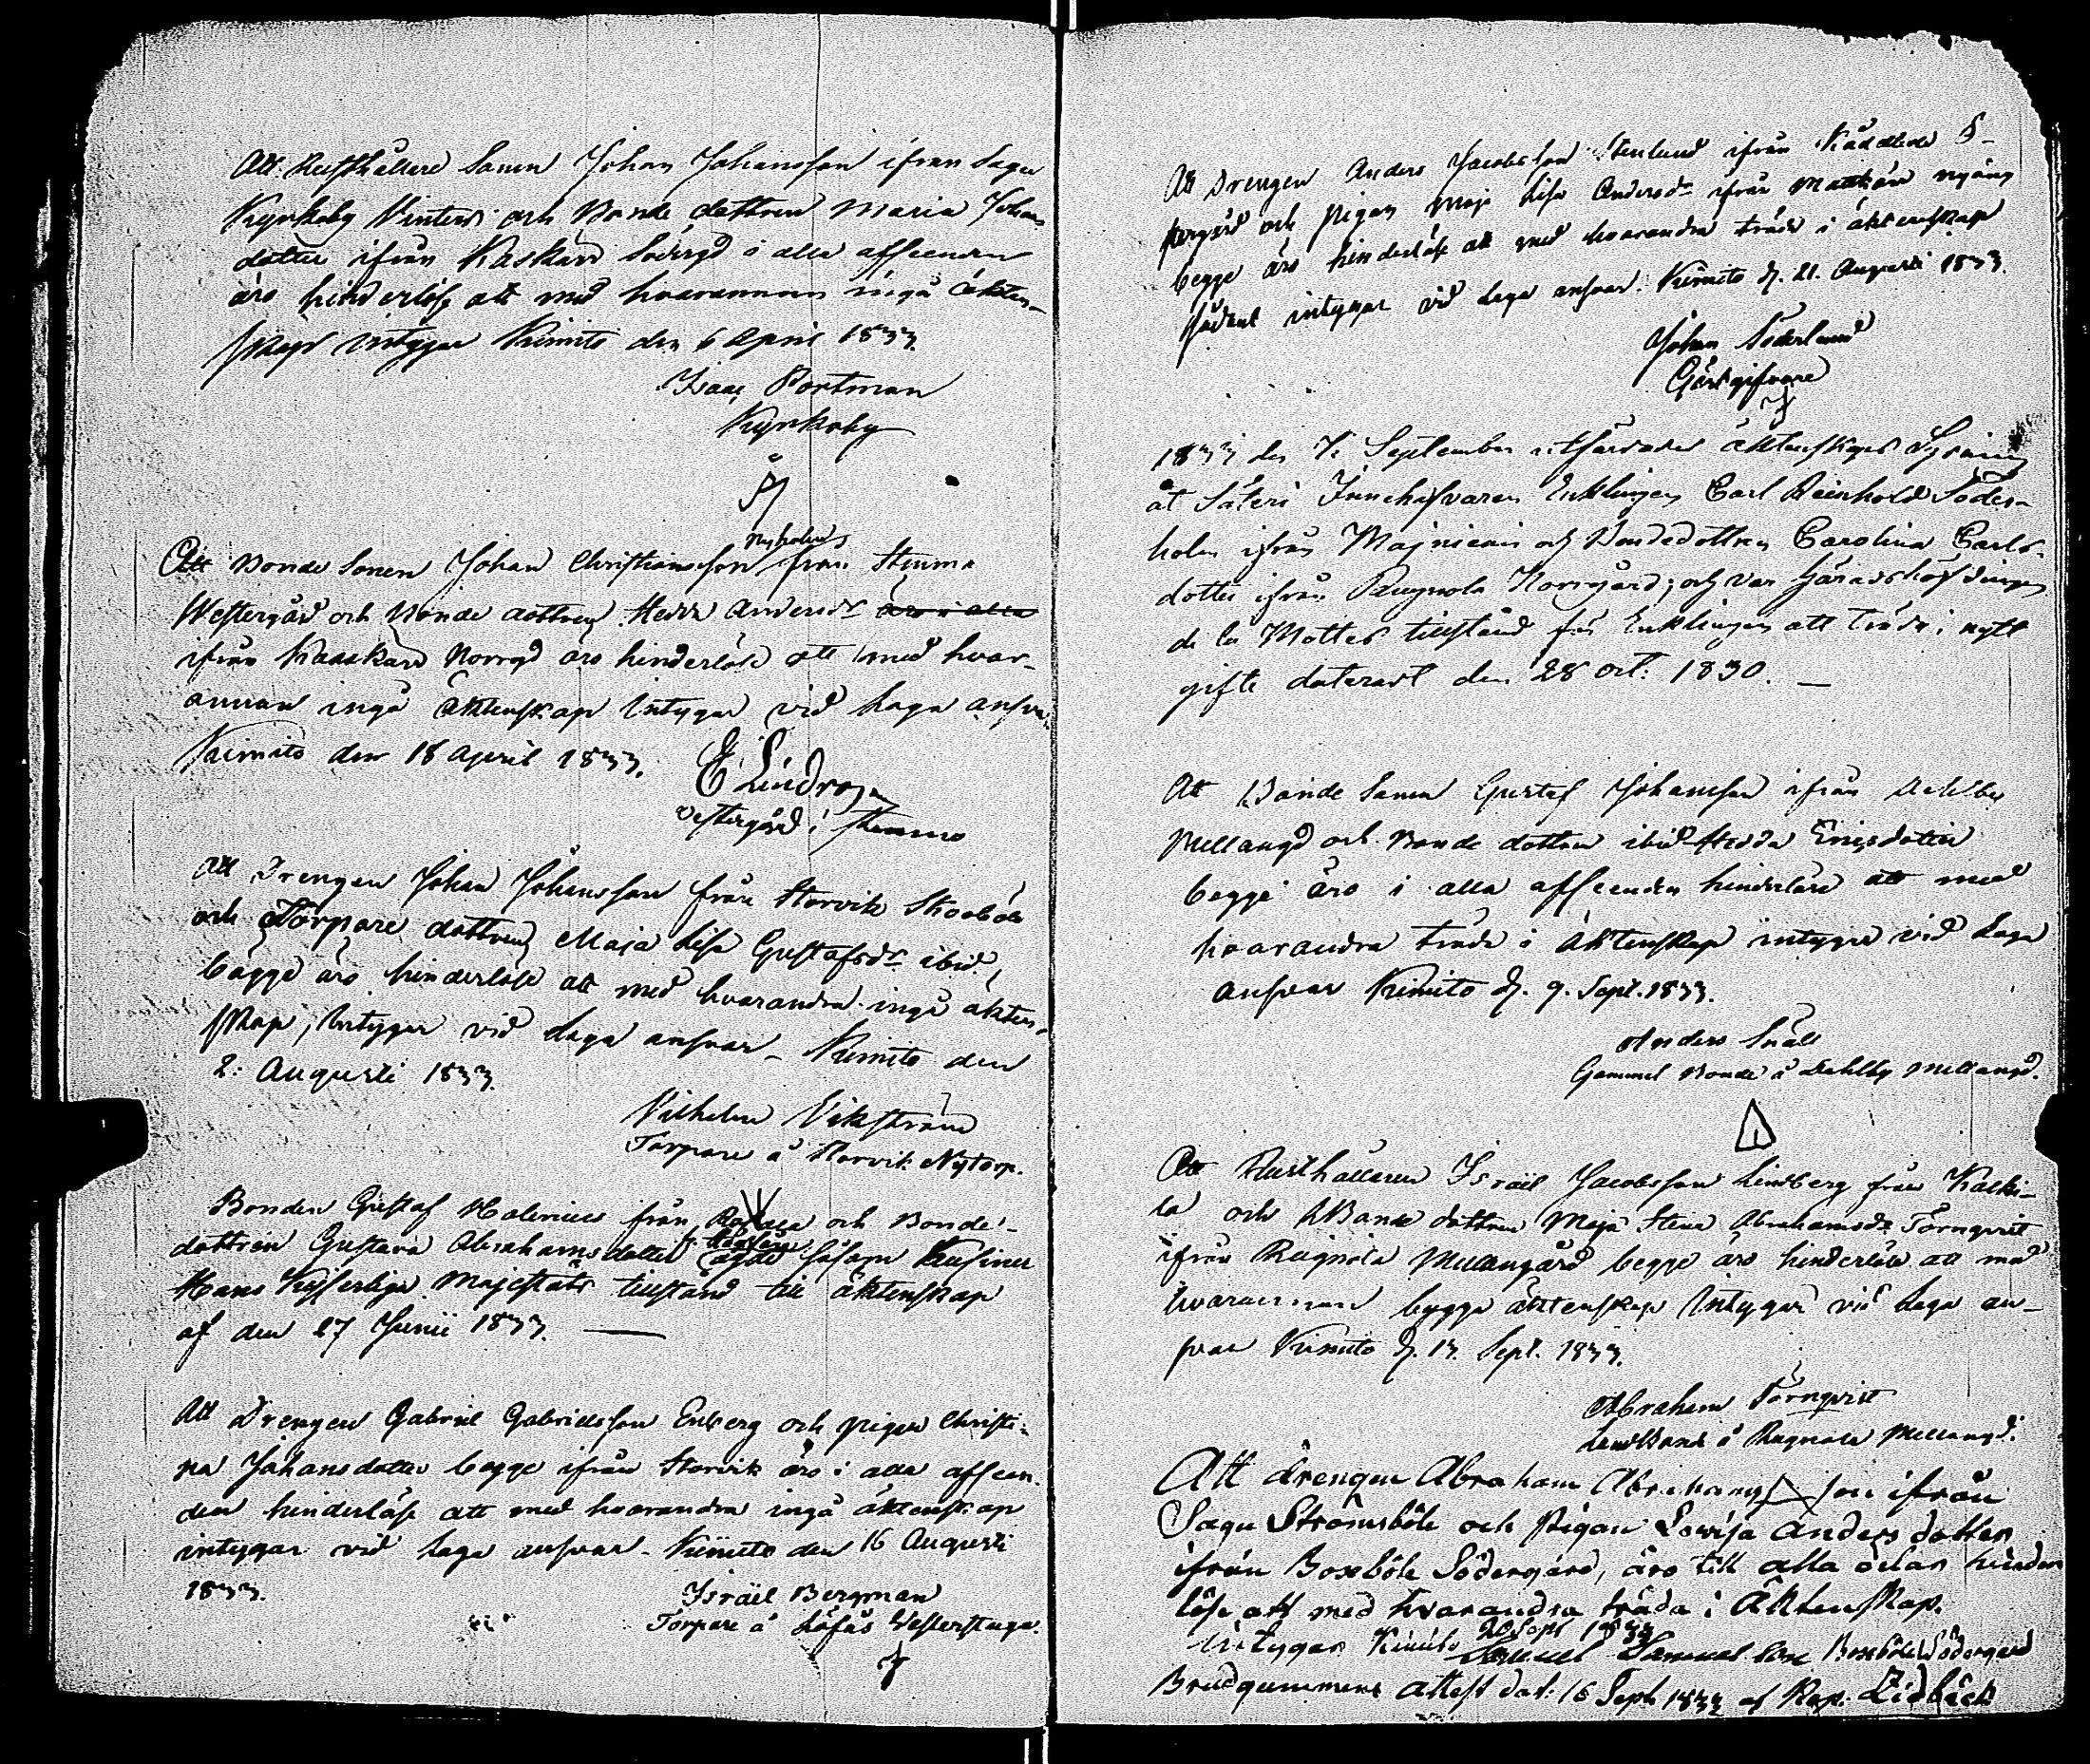 Att Rusthållare Sonen Johan Johansson ifrån Sagu
Kyrkoby Winters och Bonde dottren Maria Johans
dotter ifrån Kaskard Södergd i alla afseenden
äro hinderlöse att med hvarannan ingå äkten-
skap intygar Kimito den 6 April 1833.
Isaac Portman
Kyrkoby
Att Bonde Sonen Johan Christiansson Nyholm från Stemma
Westergård och Bonde dottren Hedda Andersdr äro i alla
ifrån Kaaskard Norrgd äro hinderlöse att med hvar-
annan ingå Äktenskap Intygar vid Laga ansvar.
Kaimito den 18 April 1833.
E Lindros
Vestergård i Stemmo
Att Drengen Johan Johansson från Storvik Skoböle
och Torpare dottren Maja Lisa Gustafsdr ibid.,
bägge äro hinderlöse att med hvarandra ingå äkten-
skap, Intygar vid Laga ansvar - Kimito den
2: Augusti 1833.
Vilhelm Vikström
Torpare å Storvik Nytorp.
Bonden Gustaf Malenius från och Bonde-
dottren Gustava Abrahamsdotter såsom Kusiner
Hans Kejserliga Majestäts tillstånd till äktenskap
af den 27 Junii 1833.
Att Drengen Gabriel Gabrielsson Enberg och pigan Christi-
na Johansdotter begge ifrån Storvik äro i alla afseen-
den hinderlöse att med hvarandra ingå äktenskap
intygar vid Laga ansvar - Kimito den 16 Augusti
1833.
Israël Bergman
Torpare å Löfås Westerstuga.
Att Drengen Anders Jacobsson Stenlund ifrån S-
tergård och Pigan Maja Lisa Andersdr ifrån Mattkärr nyäng
begge äro hinderlöse att med hvarandra träda i äktenskap
sådant intygar vid Laga ansvar. Kimito d. 21. Augusti 1833.
Johan Söderlund
Gästgifvare
1833 den September utfärdades äktenskaps Lysning
åt Säteri Innehafvaren Enklingen Carl Reinhold Söder-
holm ifrån Majniemi och Bondedottren Carolina Carls-
dotter ifrån Rugnola Norrgård; och var Häradshöfdingen
de la Mottes tillstånd för Enklingen att träda i nytt
gifte daterat den 28 Oct: 1830.
Att Bonde Sonen Gustaf Johansson ifrån Dahlby
Mellangd och Bonde dottren ibid Hedda Ericsdotter
begge äro i alla afseenden hinderlöse att med
hvarandra träda i äktenskap intygar vid Laga
ansvar Kimito d. 9. Sept. 1833.
Anders Snäll
Gammal Bonde å Dahlby Mellangd.
Att Rusthållaren Israël Jacobsson Lindberg från Kalki-
la och Bonde dottren Maja Stina Abrahamsdr Törnqvist
ifrån Rugnola Mellangård begge äro hinderlöse att med
hvarannan bygga äktenskap Intygar vid Laga an-
svar Kimito d. 13. Sept. 1833.
Abraham Törnqvist
Landbonde å Rugnola Mellangd.
Att drengen Abraham Abrahamsson ifrån
Sagu Strömsböle och Pigan Lovisa Andersdotter
ifrån Boxböle Södergård, äro till alla delar hinder
löse att med hvarandra träda i Äktenskap.
Intygar Kimito 20 Sept 1833
Samuel Samuelsson Boxböle Södergård
Brudgummens Attest dat: 16 Sept 1833 af Kap. Lidbäck